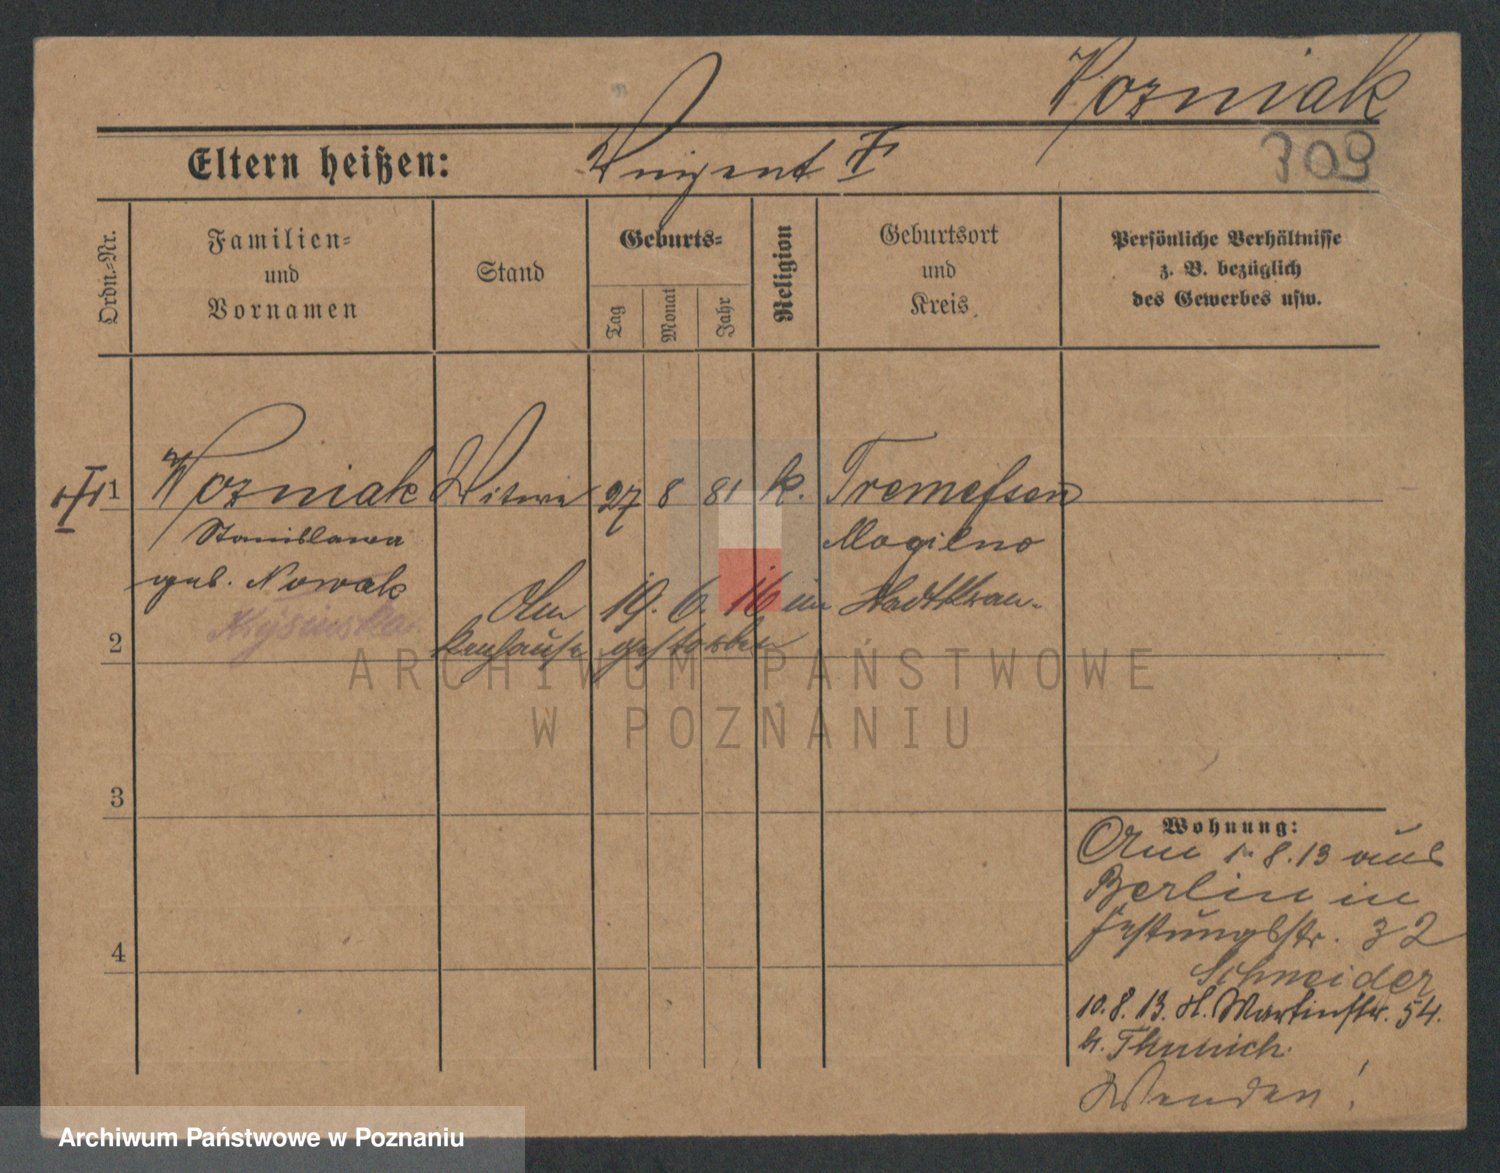 Wozniak
309
Eltern heißen:
Ordn.-Nr.
Familien-
und
Vornamen
Stand
Geburts-
Tag
Monat
Jahr
Religion
Geburtsort
und
Kreis
Persönliche Verhältnisse
z. B. bezüglich
des Gewerbes usw.
1 Wozniak Witwe 27 8 81 k. Tremessen
Stanislawa Mogilno
geb. Nowak Am 19. 6. 16 im Stadtkran-
2 kenhause gestorben
3
4
Wohnung:
Am 1. 8. 13 aus
Berlin in
Festungsstr. 32
Schneider
10. 8. 13. St. Martinstr. 54.
b. Thunich
Wenden!
ARCHIWUM PAŃSTWOWE
W POZNANIU
Archiwum Państwowe w Poznaniu